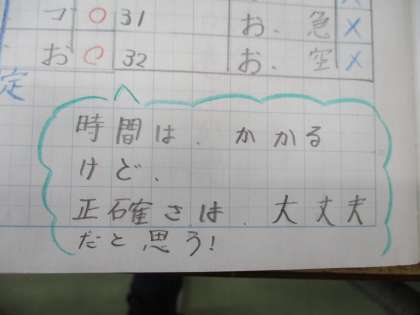 コ ○ 31 お、急 ×
お ○ 32 お、空 ×
定
時間は、かかる
けど、
正確さは、大丈夫
だと思う!